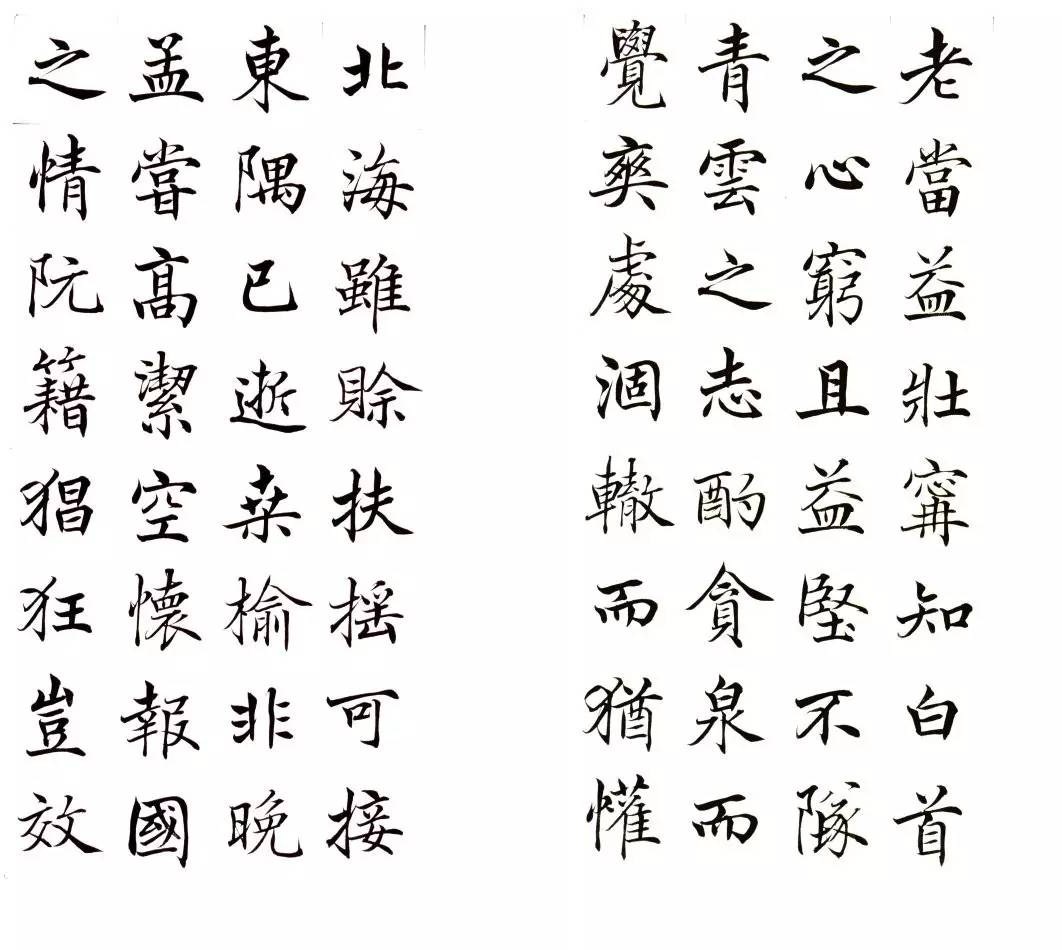 老當益壯寗知白首
之心窮且益堅不隊
青雲之志酌貪泉而
覺爽處涸轍而猶懽
北海雖賒扶搖可接
東隅已逝桒榆非晚
孟嘗髙潔空懷報國
之情阮籍猖狂豈效